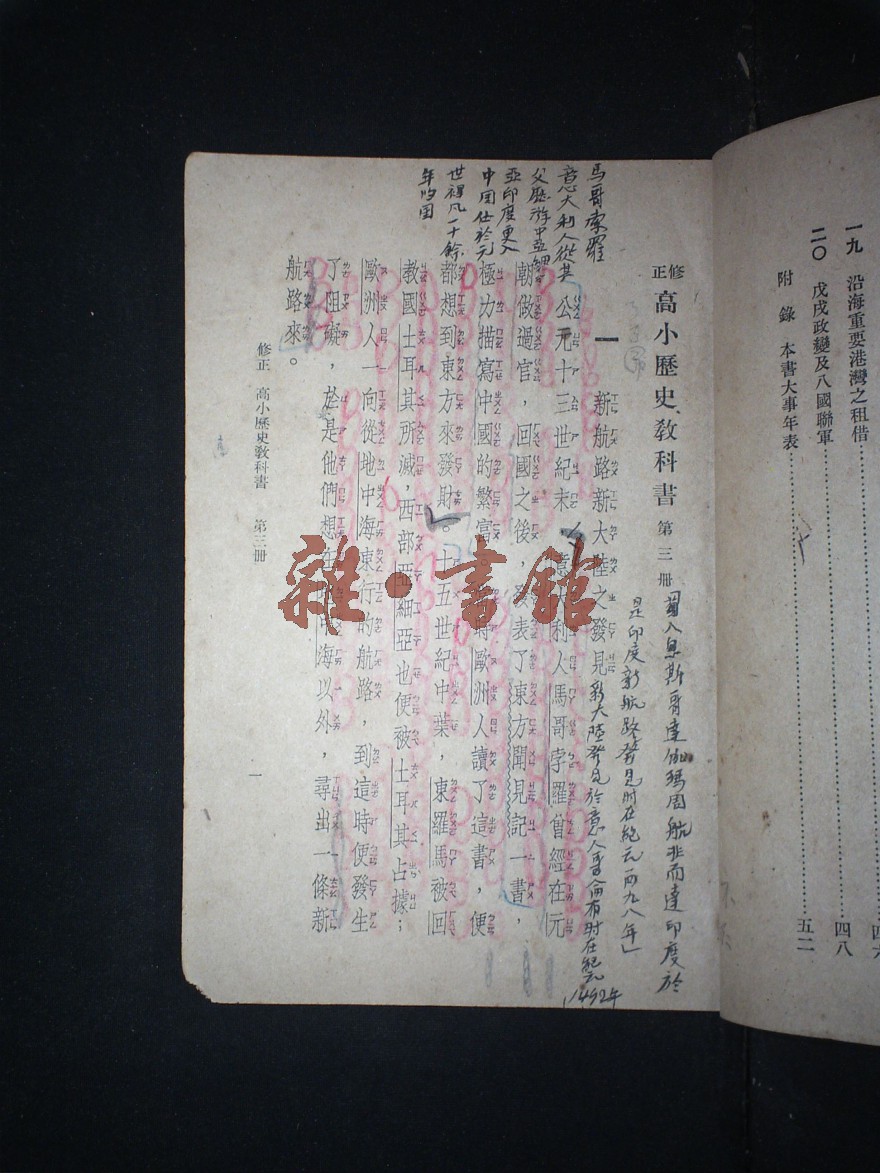 一九 沿海重要港灣之租借
二〇 戊戌政變及八國聯軍 四八
附錄 本書大事年表 五二
修正 高小歷史教科書 第三冊
葡人
斯哥達伽瑪周航非而達印度於
是印度新航路發見时在紀元一四九八年」
一 新航路新大陸之發見
新大陸發見於意人哥倫布时在紀元
1492年
公元十三世紀末，意大利人馬哥孛羅曾經在元
朝做過官，回國之後，發表了東方聞見記一書，
極力描寫中國的繁富。那時歐洲人讀了這書，便
都想到東方來發財。十五世紀中葉，東羅馬被回
教國土耳其所滅，西部亞細亞也便被土耳其占據；
歐洲人一向從地中海東行的航路，到這時便發生
了阻礙，於是他們想在地中海以外，尋出一條新
航路來。
馬哥索羅
意大利人從其
父歷游中亞細
亞印度更入
中国仕於元
世祖凡一十餘
年归国
修正 高小歷史教科書 第三冊
一
雜·書館